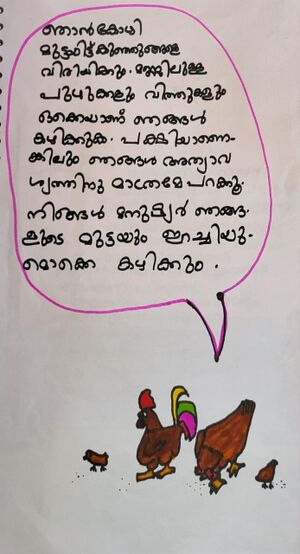 ഞാൻ കോഴി
മുട്ടയിട്ട് കുഞ്ഞുങ്ങളെ
വിരിയിക്കും. മണ്ണിലുള്ള
പുഴുക്കളും വിത്തുകളും
ഒക്കെയാണ് ഞങ്ങൾ
കഴിക്കുക. പക്ഷിയാണെ-
ങ്കിലും ഞങ്ങൾ അത്യാവ
ശ്യത്തിനു മാത്രമേ പറക്കൂ.
നിങ്ങൾ മനുഷ്യർ ഞങ്ങ-
ളുടെ മുട്ടയും ഇറച്ചിയു-
മൊക്കെ കഴിക്കും.